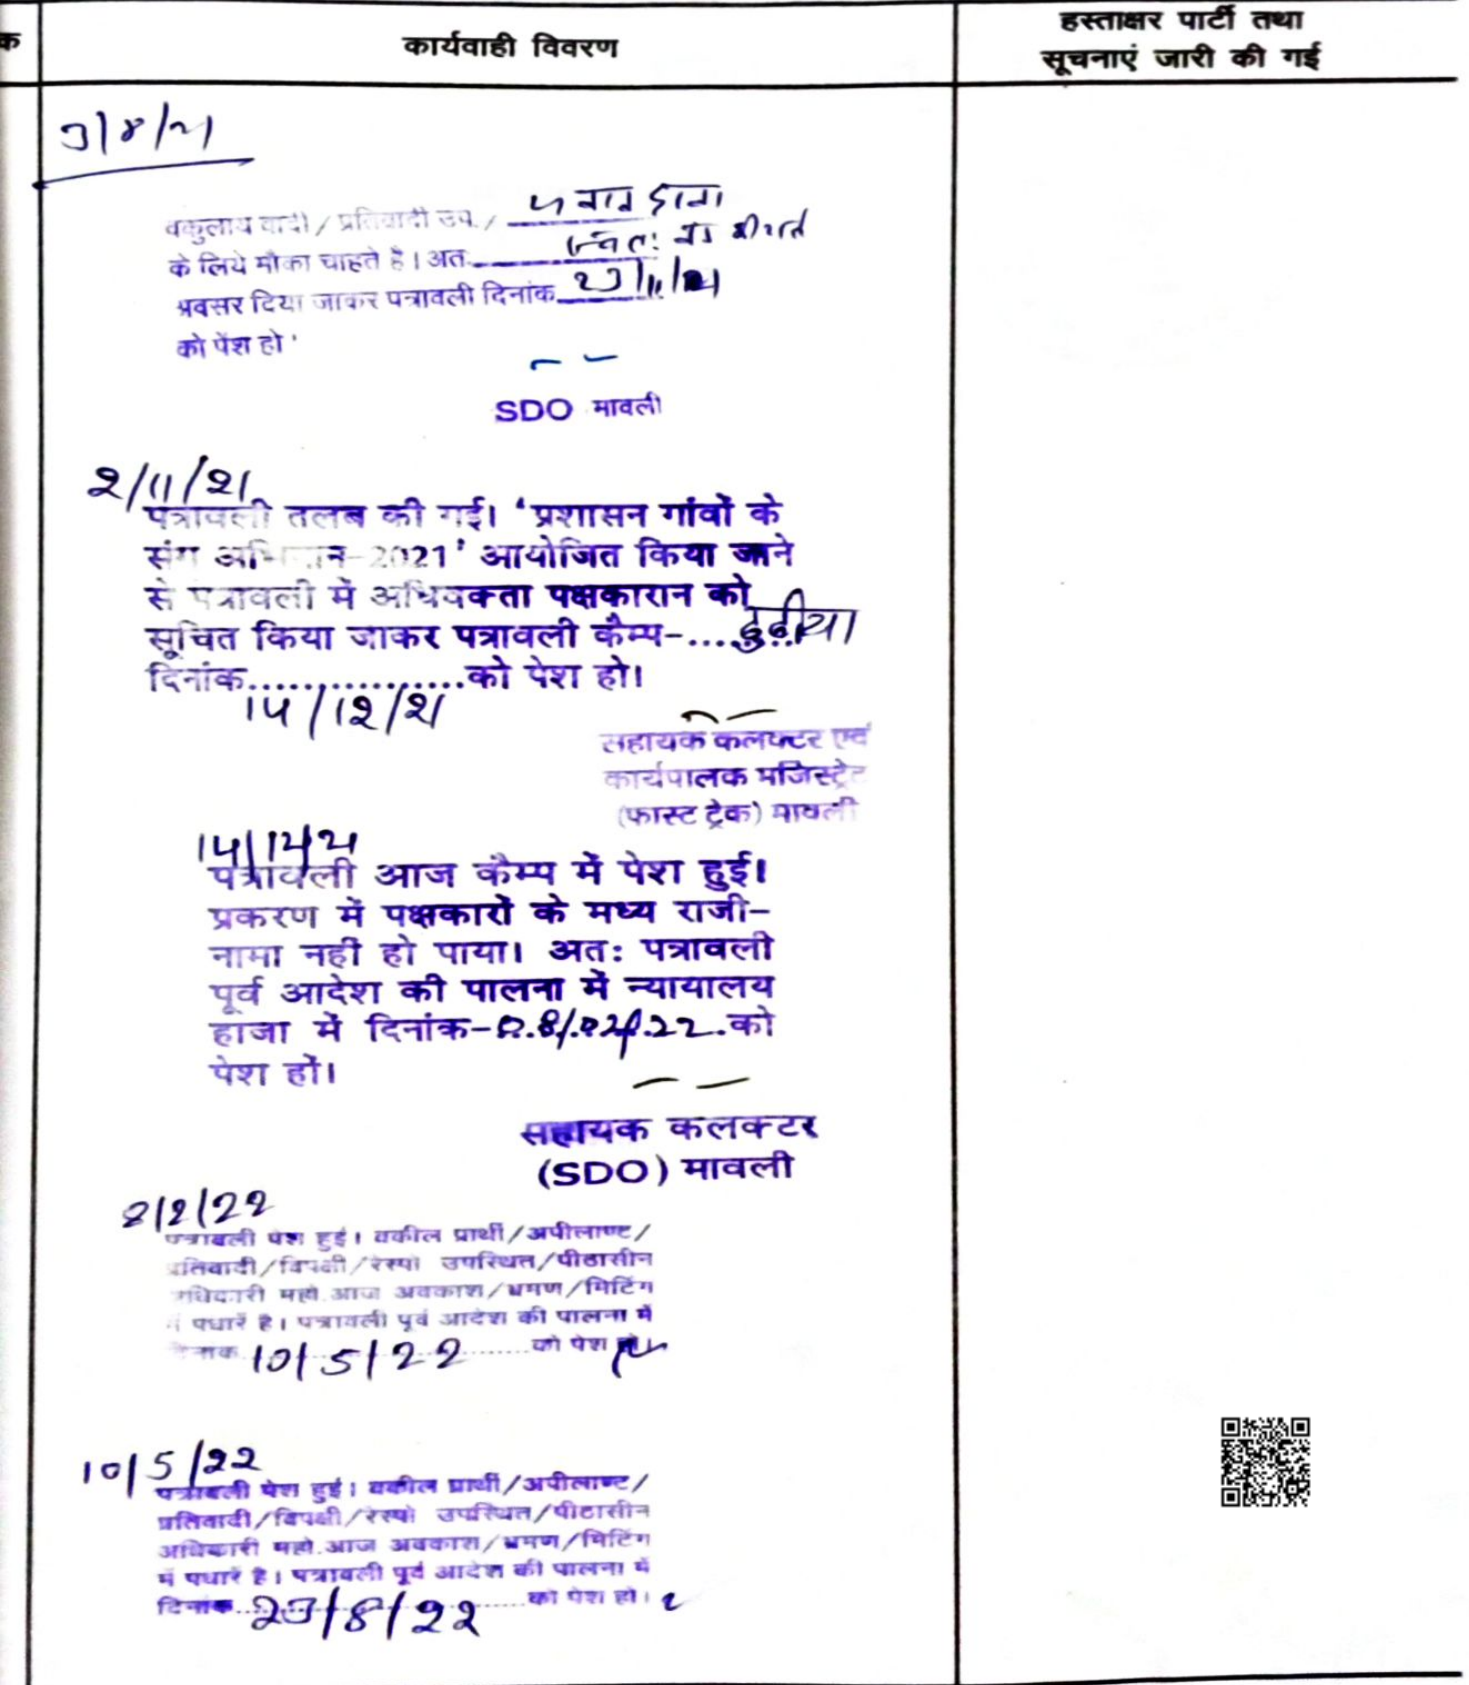 क
कार्यवाही विवरण
हस्ताक्षर पार्टी तथा
सूचनाएं जारी की गई
वकुलाय वादी / प्रतिवादी उप. /
के लिये मौका चाहते है। अत
अवसर दिया जाकर पत्रावली दिनांक
को पेंश हो
SDO मावली
2/11/21
पत्रावली तलब की गई। 'प्रशासन गांवों के
संग अभियान-2021' आयोजित किया जाने
से पत्रावली में अधिवक्ता पक्षकारान को
सूचित किया जाकर पत्रावली कैम्प-....
दिनांक................को पेश हो।
14/12/21
सहायक कलक्टर एवं
कार्यपालक मजिस्ट्रेट
(फास्ट ट्रेक) मावली
पत्रावली आज कैम्प में पेश हुई।
प्रकरण में पक्षकारों के मध्य राजी-
नामा नहीं हो पाया। अतः पत्रावली
पूर्व आदेश की पालना में न्यायालय
हाजा में दिनांक-08/02/22 को
पेश हों।
सहायक कलक्टर
(SDO) मावली
8/2/22
पत्रावली पेश हुई। वकील प्रार्थी/अपीलाण्ट/
प्रतिवादी/विपक्षी/रेस्पो उपस्थित/पीठासीन
अधिकारी महो.आज अवकाश/भ्रमण/मिटिंग
में पधारें है। पत्रावली पूर्व आदेश की पालना में
दिनांक 10/5/22 को पेश हो।
10/5/22
पत्रावली पेश हुई। वकील प्रार्थी/अपीलाण्ट/
प्रतिवादी/विपक्षी/रेस्पो उपस्थित/पीठासीन
अधिकारी महो.आज अवकाश/भ्रमण/मिटिंग
में पधारें है। पत्रावली पूर्व आदेश की पालना में
दिनांक 23/8/22 को पेश हो।